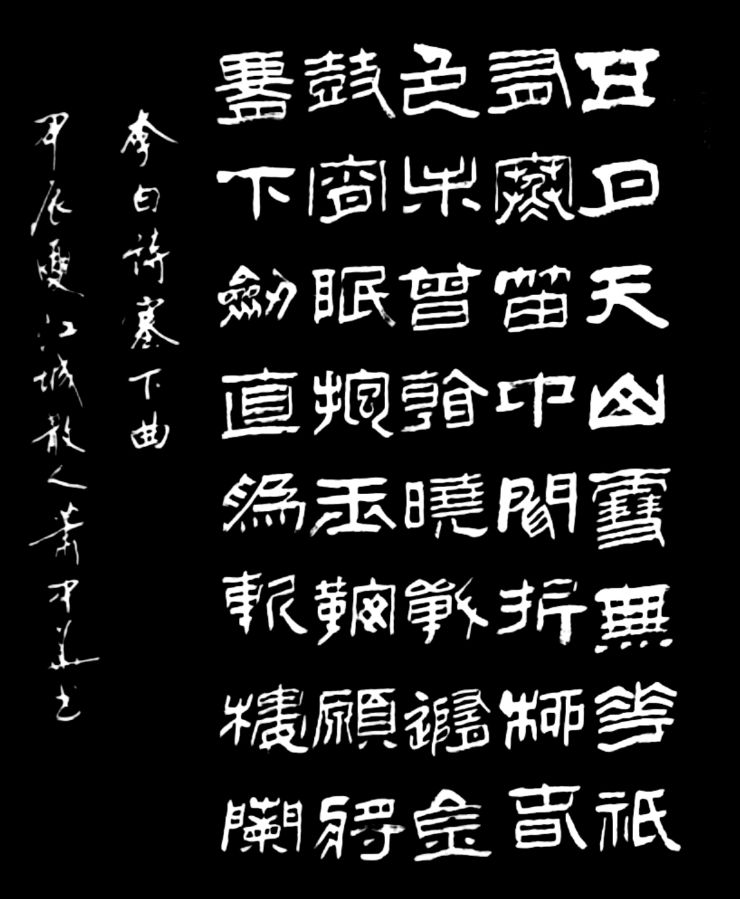 五月天山雪無花祇
有寒笛中聞折柳春
色未曾看曉戰隨金
鼓宵眠抱玉鞍願將
腰下劍直為斬樓蘭
李白詩塞下曲
甲辰夏江城散人蕭 书